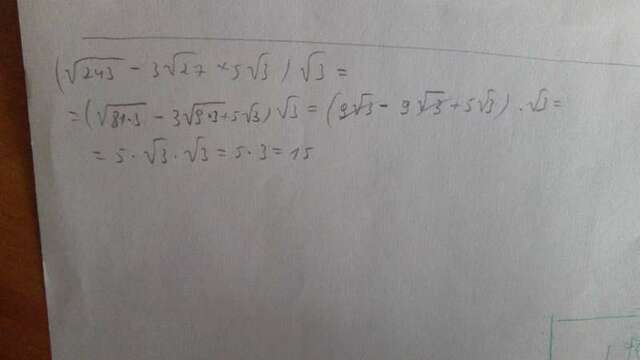 (√243 - 3√27 + 5√3) √3 =
= (√81·3 - 3√9·3 + 5√3) √3 = (9√3 - 9√3 + 5√3) · √3 =
= 5 · √3 · √3 = 5 · 3 = 15